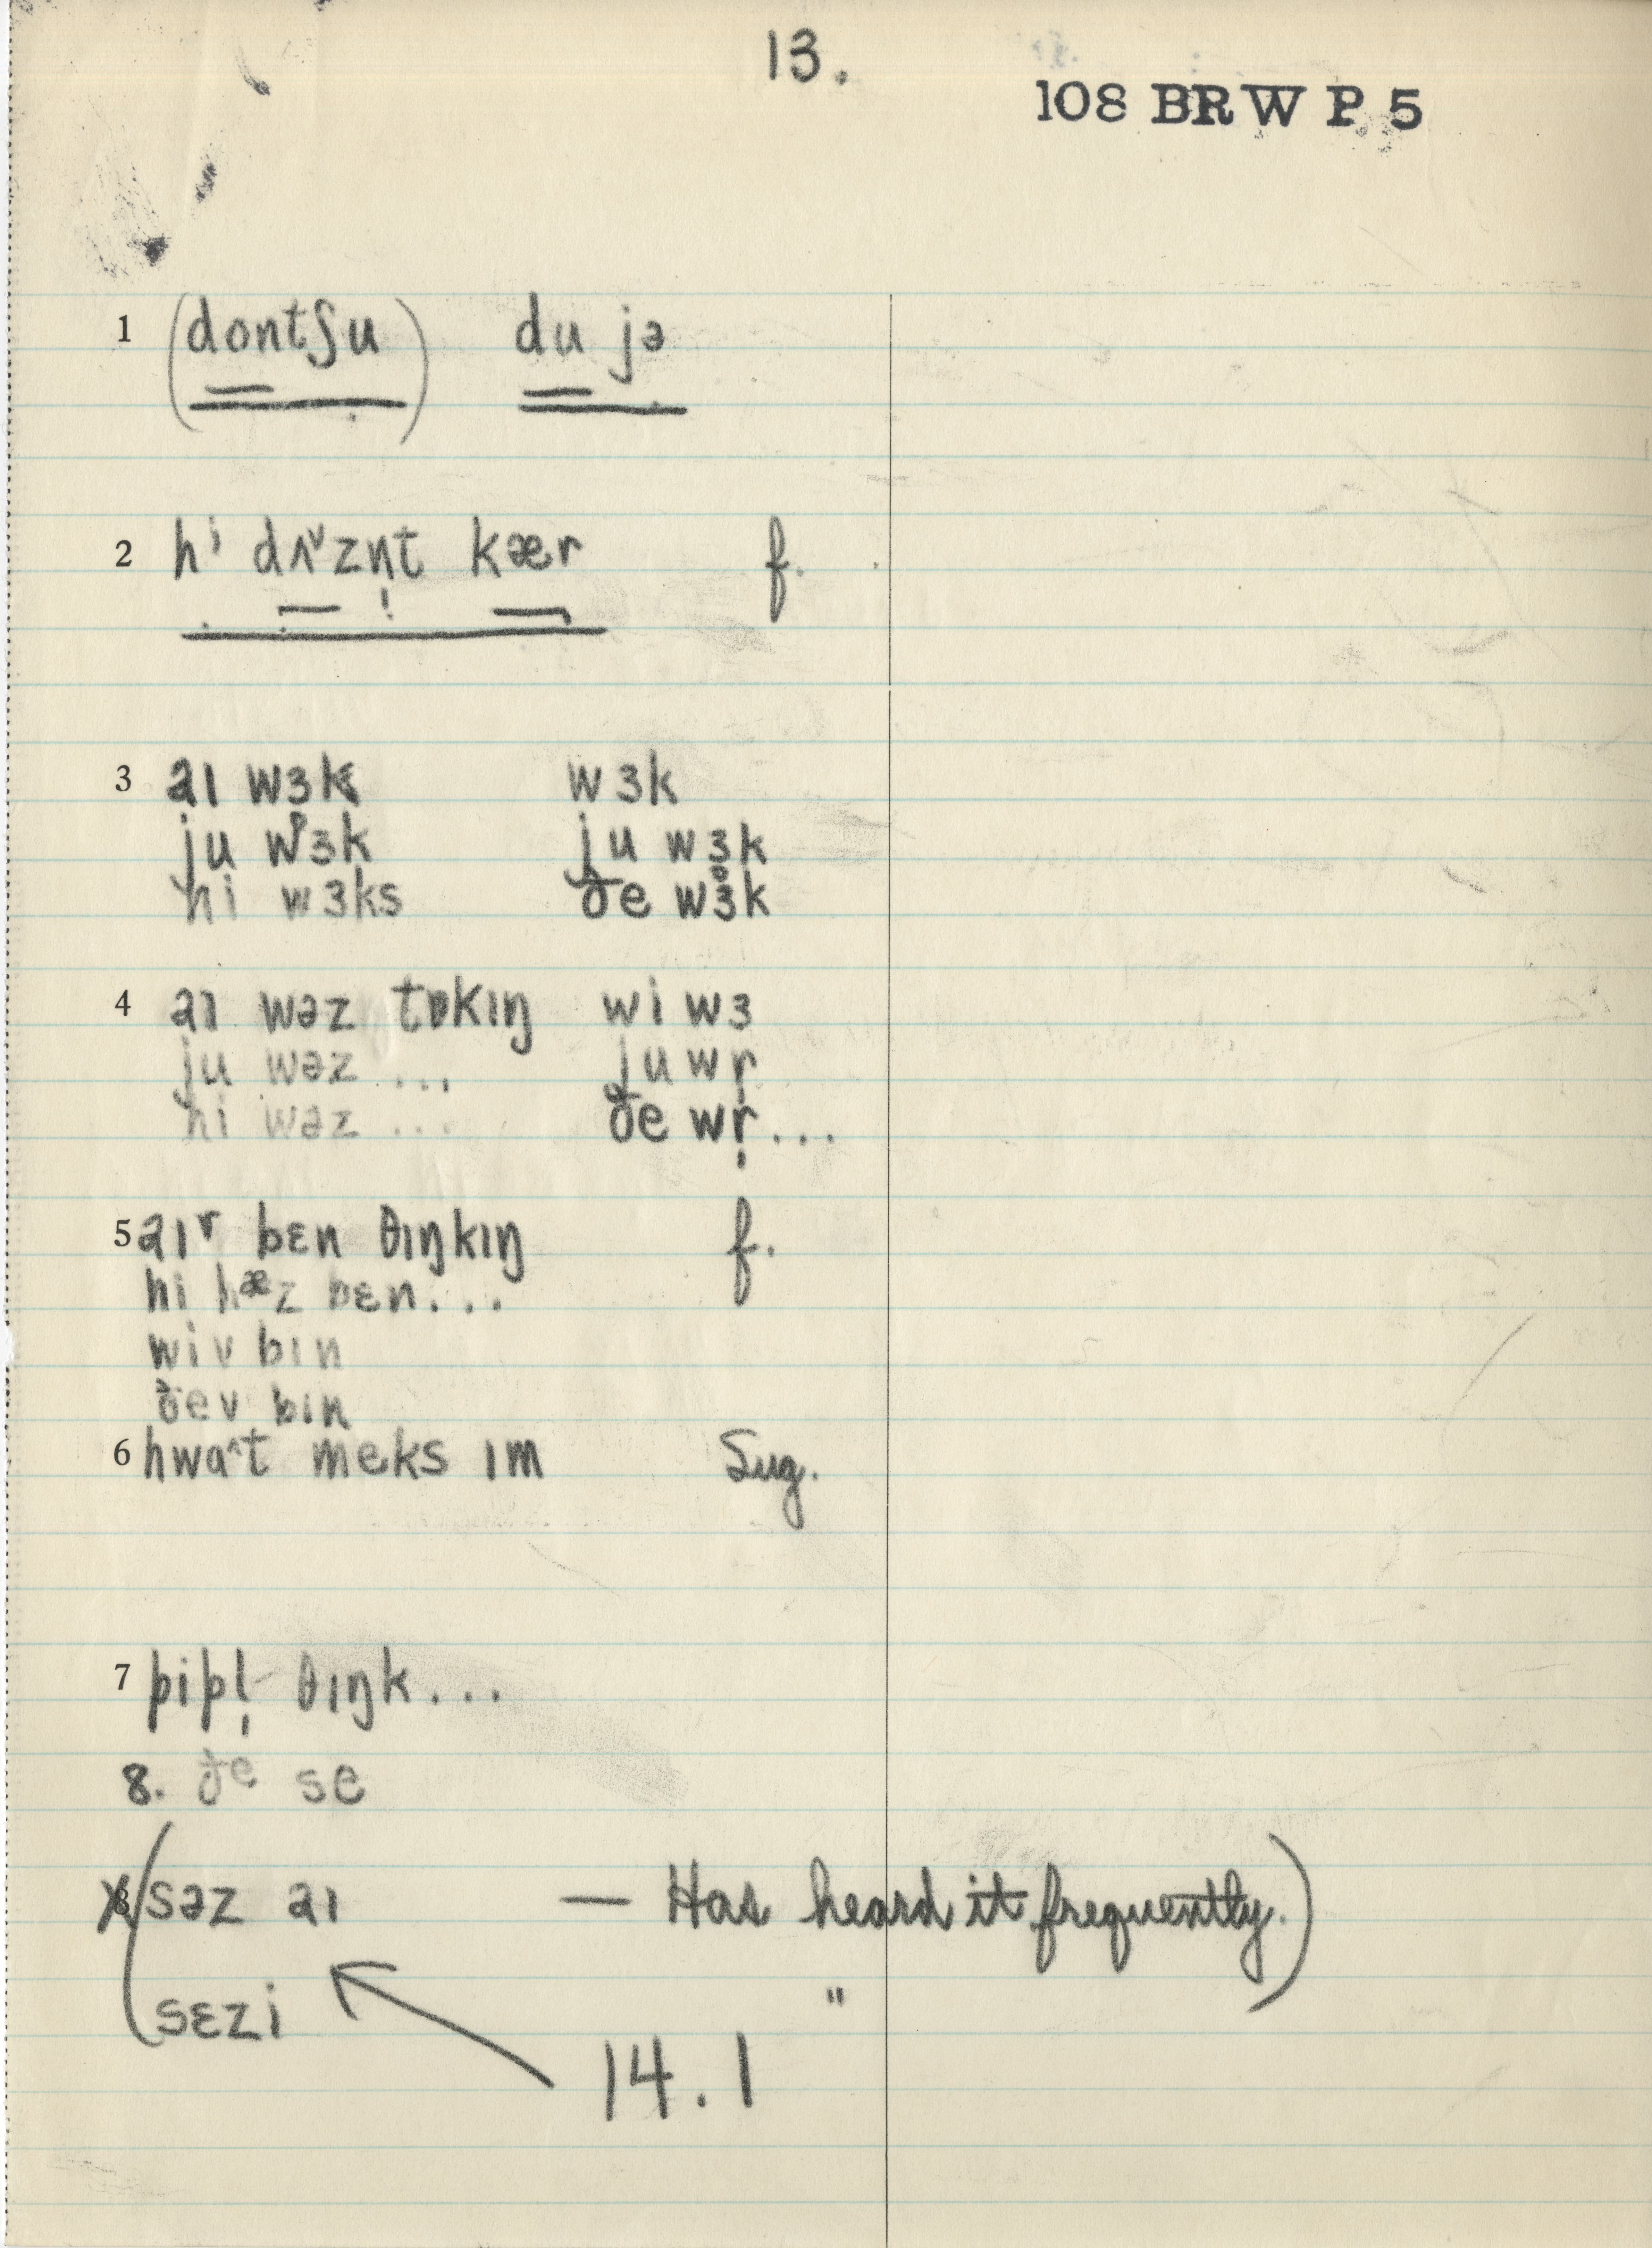 13.
108 BRW P 5
1 (dontʃu) du jə
2 hⁱ dʌ˅zn̩t kær f.
3 aɪ wɜk wɜk
ju wɜk ju wɜk
hi wɜks ðe wɜk
4 aɪ wəz tɒkɪŋ wi wɜ
ju wəz ... ju wr̩
hi wəz ... ðe wr̩...
5 aɪᵛ bɛn θɪŋkɪŋ f.
hi hæz bɛn...
wiv bɪn
ðev bɪn
6 hwa^t meks ɪm Sug.
7 pipl̩ θɪŋk...
8. ðe se
(səz aɪ — Has heard it frequently.)
sɛzi "
14.1